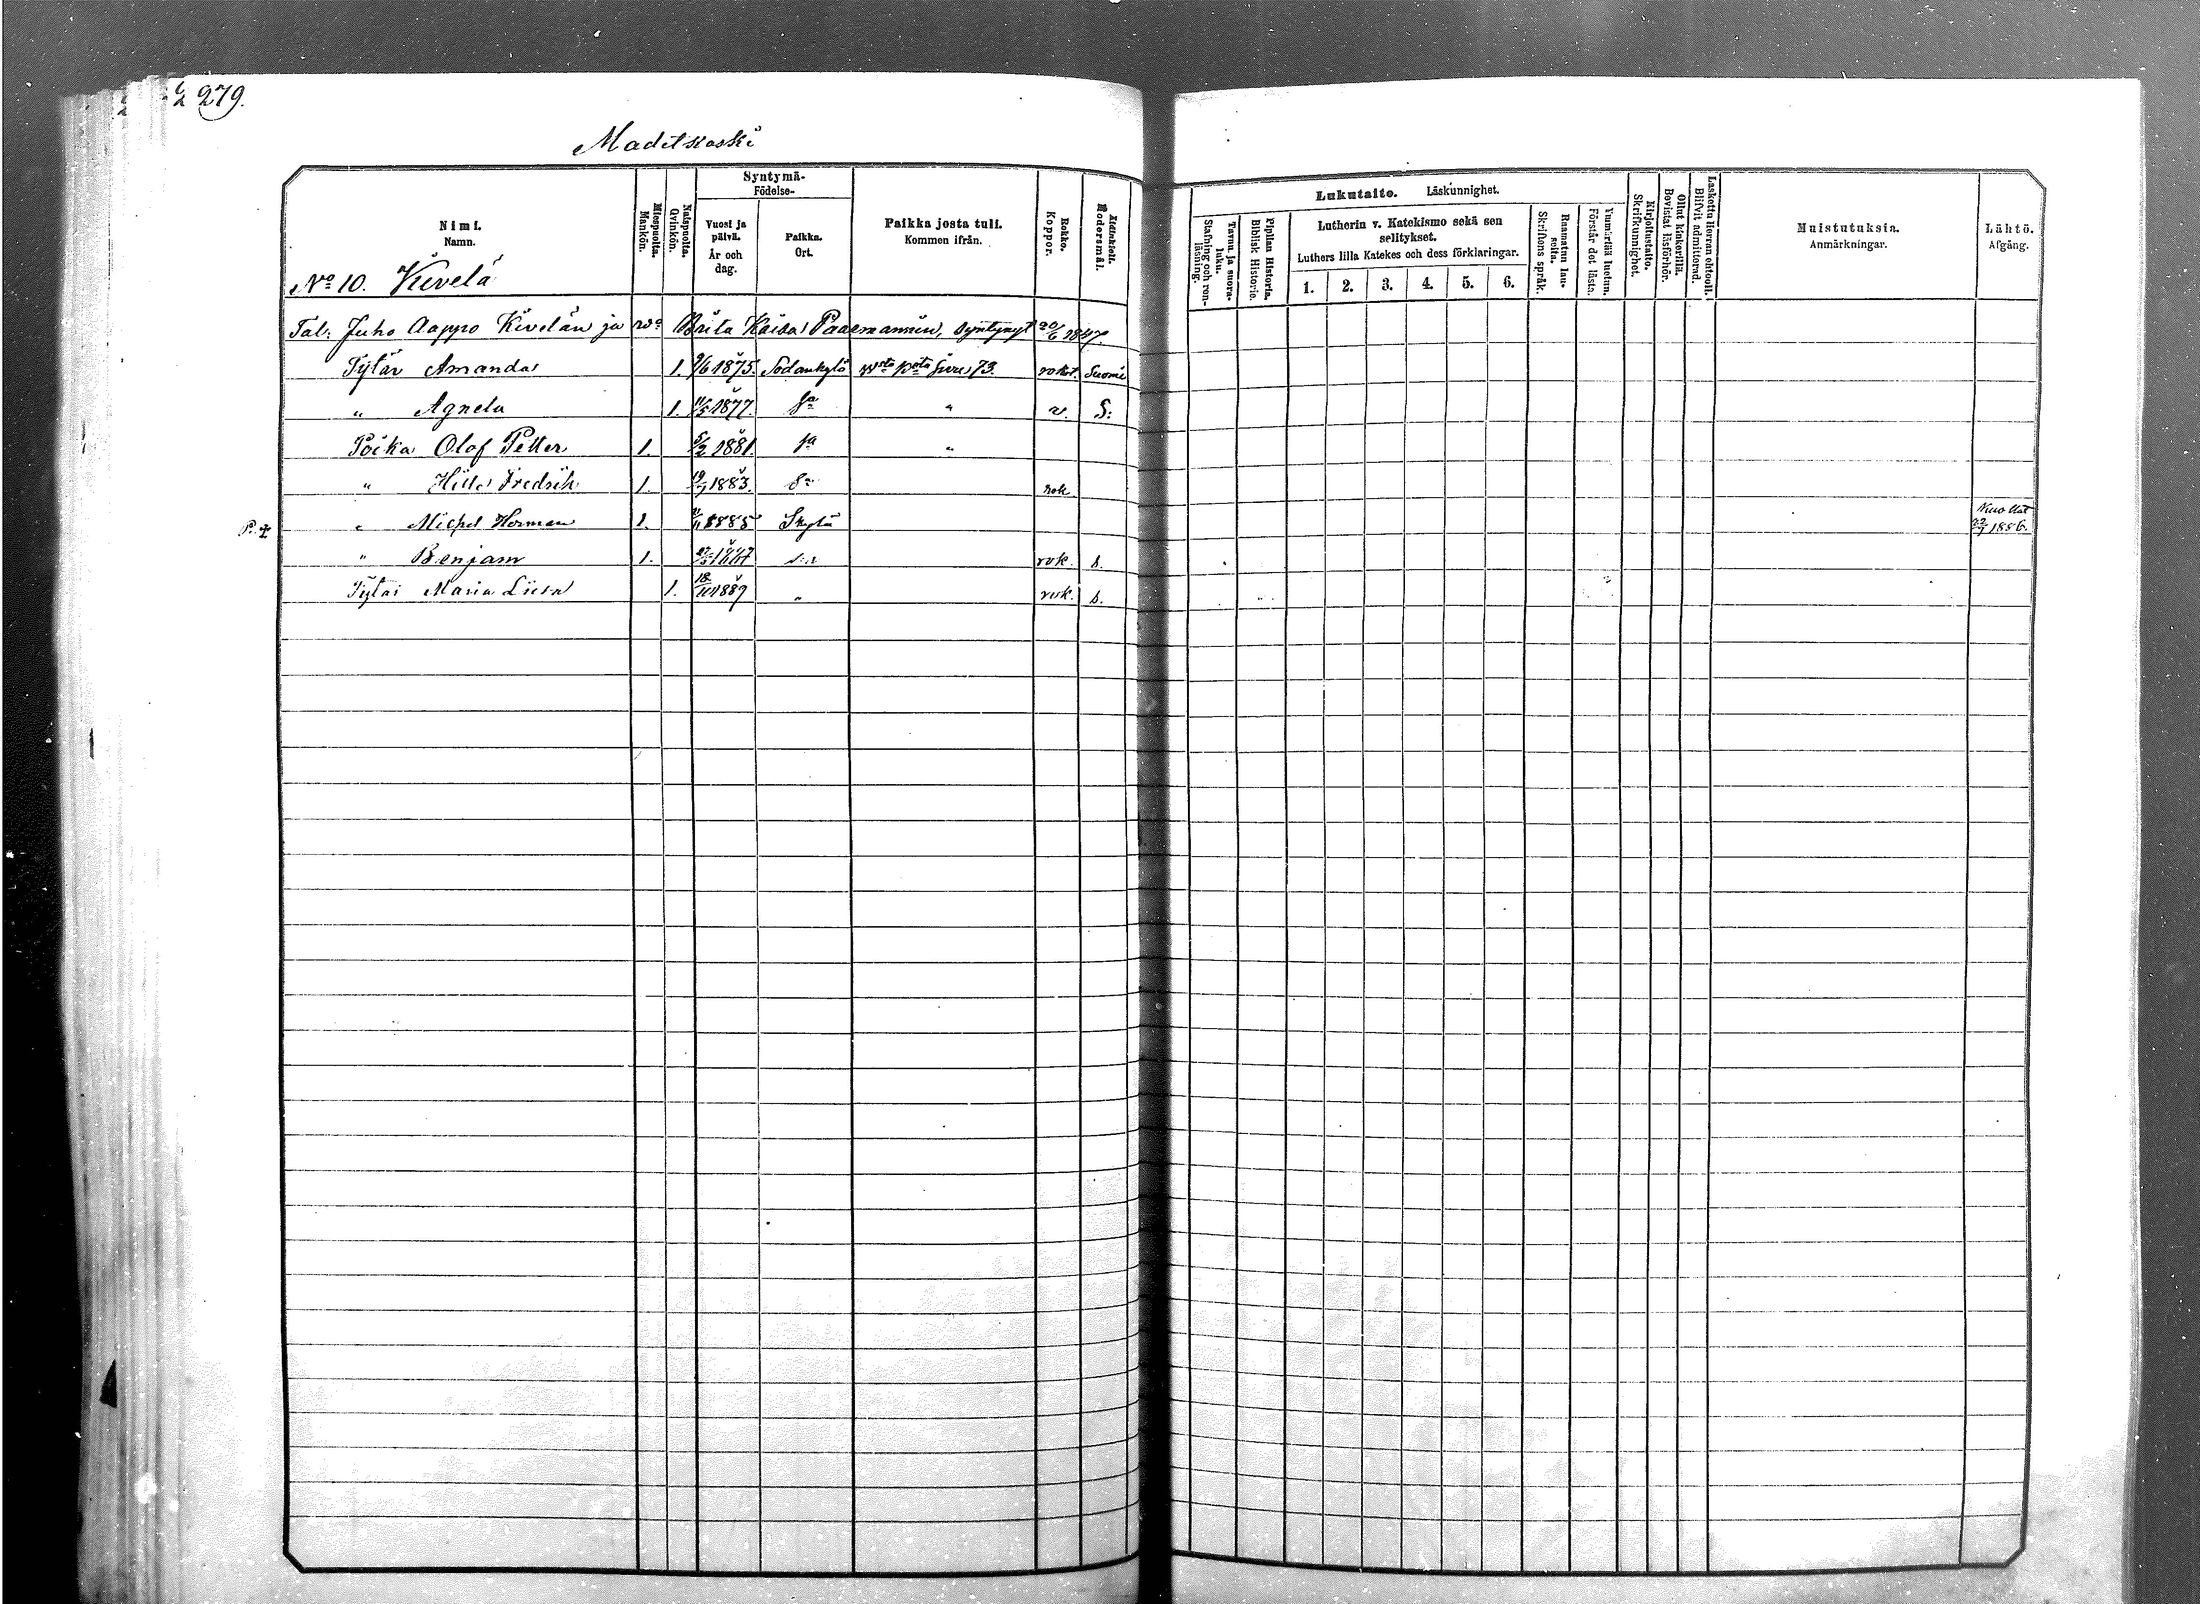 279.
Madetkoski
Syntymä-
Födelse-
Nimi.
Namn.
Miespuolta.
Mankön.
Naispuolta.
Qvinkön.
Vuosi ja
päivä.
År och
dag.
Paikka.
Ort.
Paikka josta tuli.
Kommen ifrån.
Rokko.
Koppor.
Äidinkieli.
Modersmål.
No 10. Kivelä
Tal: Juho Aappo Kivelän ja wo Brita Kaisa Paaemannin, syntynyt 20/6 1847
Tytär Amanda 1. 9/6 1875. Sodankylä rokot. Suomi
" Agneta 1. 11/5 1877. Sa " r. S:
Poika Olof Petter 1. 5/2 1881. Sa "
" Fredrik 1. 19/7 1883. Sa rok
P. ‡ " Michel Herman 1. 1885 Skylä
" Benjam 1. rok. s.
Tytär Maria Liisa 1. 18/11 1889 " rok. s.
Lukutaito. Läskunnighet.
Tavuu ja suora-
luku.
Stafning och ren-
läsning.
Piplian Historia.
Biblisk Historie.
Lutherin v. Katekismo sekä sen
selitykset.
Luthers lilla Katekes och dess förklaringar.
1. 2. 3. 4. 5. 6.
Raamatun lau-
seita.
Skriftens språk.
Ymmärtää luetun.
Förstår det lästa.
Kirjoitustaito.
Skrifkunnighet.
Ollut kinkerillä.
Bevistat läsförhör.
Laskettu Herran ehtool.
Blifvit admitterad.
Muistutuksia.
Anmärkningar.
Lähtö.
Afgång.
22/7 1886.